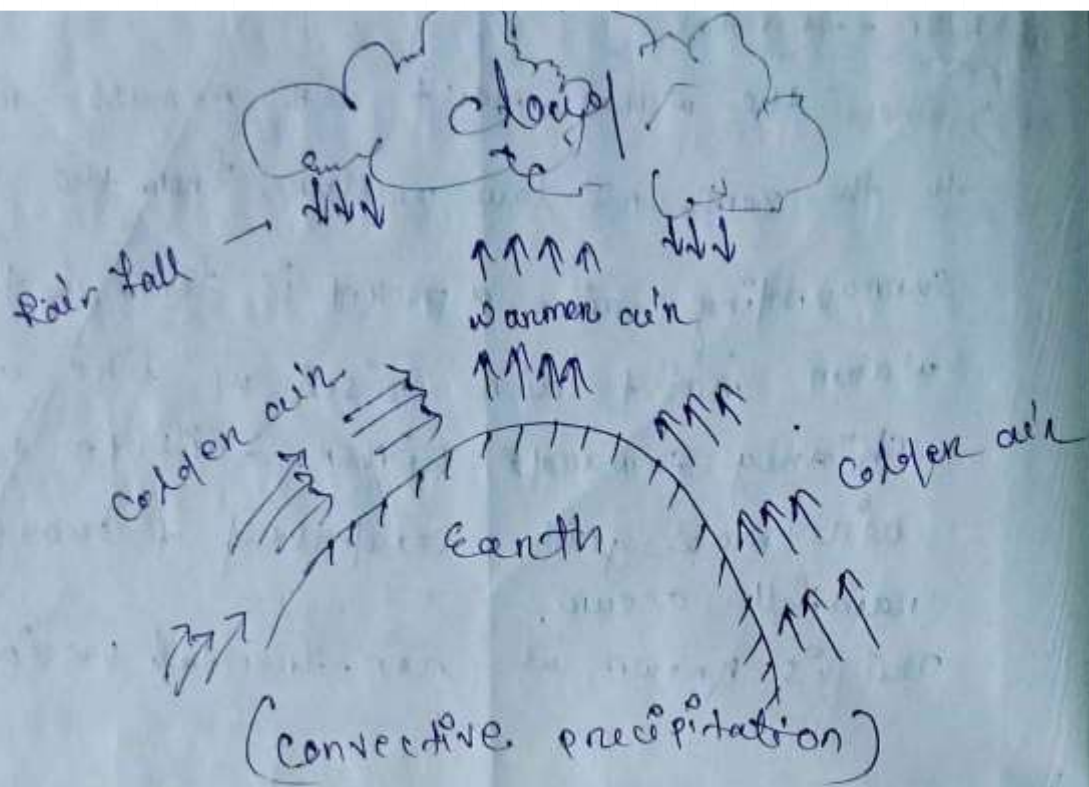 cloud
Rain fall
warmer air
colder air
colder air
Earth
(convective precipitation)